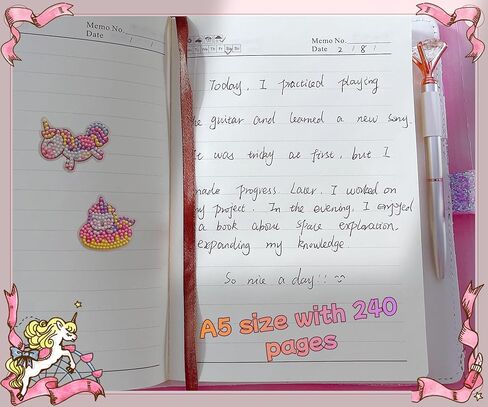 Memo No.
Date / /
Memo No.
Date 2 / 8 /
Mo Tu We Th Fr Sa Su
Today, I practiced playing
he guitar and learned a new song.
It was tricky at first, but I
made progress. Later, I worked on
my project. In the evening, I enjoyed
a book about space exploration
expanding my knowledge
So nice a day!!
A5 size with 240
pages